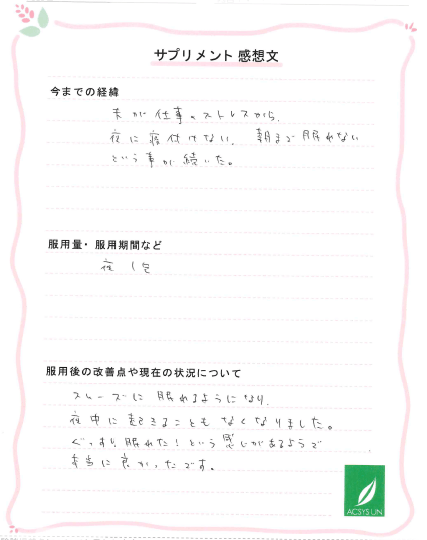 サプリメント 感想文
今までの経緯
夫が仕事のストレスから、
夜に寝付けない、朝まで眠れない
という事が続いた。
服用量・服用期間など
夜 1包
服用後の改善点や現在の状況について
スムーズに眠れるようになり、
夜中に起きることもなくなりました。
ぐっすり眠れた！という感じがあるようで
本当に良かったです。
ACSYSLIN